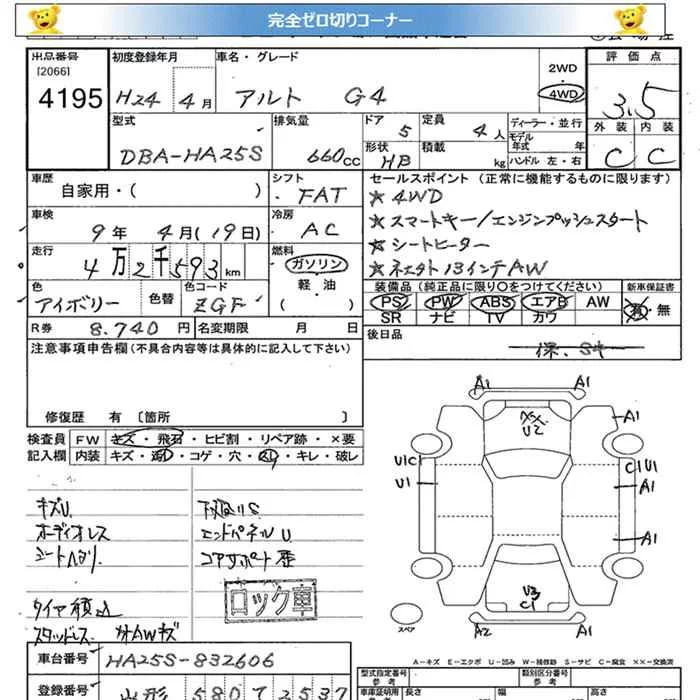 完全ゼロ切りコーナー
出品番号 初度登録年月 車名・グレード 2WD 評価点
[2066]
4195 H24 4月 アルト G4 4WD 3.5
外装 内装
C C
型式 排気量 ドア 定員 ディーラー・並行
DBA-HA25S 660cc 5 4人 モデル年式 年
形状 積載
HB kg ハンドル 左・右
車歴 シフト セールスポイント (正常に機能するものに限ります)
自家用・( ) FAT ☆4WD
車検 冷房 ☆スマートキー/エンジンプッシュスタート
9年 4月(19日) AC ☆シートヒーター
走行 燃料
4万2千593km ガソリン 13インチAW
軽・油 装備品 (純正品に限り○をつけてください) 新車保証書
色 色替 色コード PS PW ABS エアB AW 有・無
アイボリー ZGF ( ) SR ナビ TV カワ
R券 8.740円 名変期限 月 日 後日品
注意事項申告欄 (不具合内容等は具体的に記入して下さい)
修復歴 有 〔箇所 〕
検査員 FW キズ・飛石・ヒビ割・リペア跡・×要
記入欄 内装 キズ・ ・コゲ・穴・ ・キレ・破レ
A1 A1
XX
U2
A1
U1C C1 U1
U1 A1
A1
U3
C1
A2 A1
スペア
キズU.
オーディオレス エンドパネルU
コアサポート歪
ロック車
タイヤ積込
スタッドレス AWキズ
A-キズ E-エクボ U-凹み W-補修跡 S-サビ C-腐食 ××-交換済
車台番号 HA25S-832606
登録番号 山形 580 2537
型式指定番号 類別区分番号
参考 参考
車庫証明用 長さ 幅 高さ